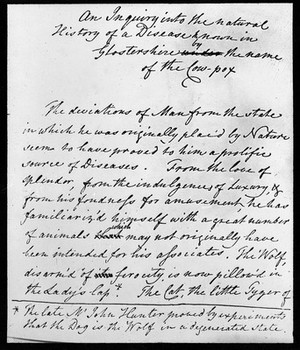 An Inquiry into the natural
History of a Disease known in
Glostershire under by the name
of the Cow-pox
The deviations of Man from the state
in which he was originally plac'd by Nature
seem to have proved to him a prolific
source of Diseases. From the love of
Splendor, from the indulgences of Luxury, &
from his fondness for amusement, he has
familiariz'd himself with a great number
of animals which may not originally have
been intended for his associates. The Wolf,
disarm'd of ferocity, is now pillow'd in
the Lady's lap*. The Cat, the little Tyger of
* The late Mr. John Hunter proved by experiments
that the Dog is the Wolf in a degenerated state.